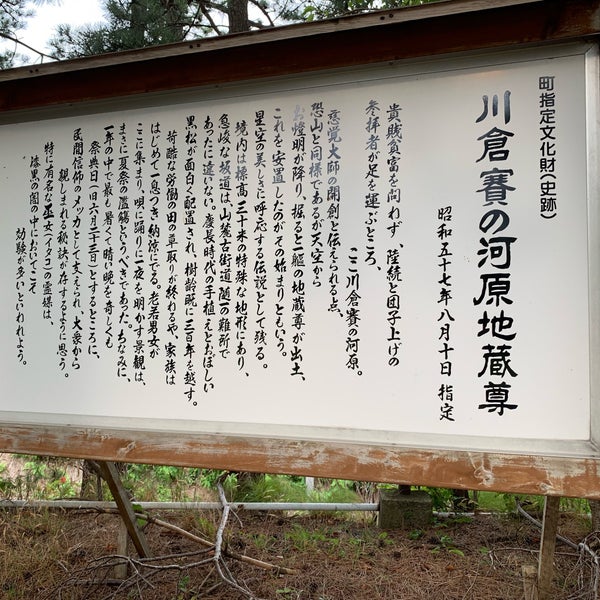 町指定文化財(史跡)
川倉賽の河原地蔵尊
昭和五十七年八月十日 指定
貴賤貧富を問わず、陸続と団子上げの
参拝者が足を運ぶところ、
ここ川倉賽の河原。
慈覚大師の開創と伝えられる点、
恐山と同様であるが天空から
お燈明が降り、掘ると一躯の地蔵尊が出土、
これを安置したのがその始まりともいう。
星空の美しさに呼応する伝説として残る。
境内は標高三十米の特殊な地形にあり、
急峻な坂道は、山麓古街道随一の難所で
あったに違いない。慶長時代の手植えとおぼしい
黒松が面白く配置され、樹齢既に三百年を越す。
苛酷な労働の田の草取りが終わるや、家族は
はじめて一息つき納涼にでる。老若男女が
ここに集まり、唄に踊りに一夜を明かす景観は、
まさに夏祭の濫觴というべきであった。ちなみに、
一年の中で最も暑くて暗い晩を奇しくも
祭典日(旧六月二十三日)とするところに、
親しまれる秘訣が存するように思う。
民間信仰のメッカとして支えられ、大衆から
特に有名な巫女(イタコ)の霊媒は、
漆黒の闇の中においてこそ
効験が多いといわれよう。